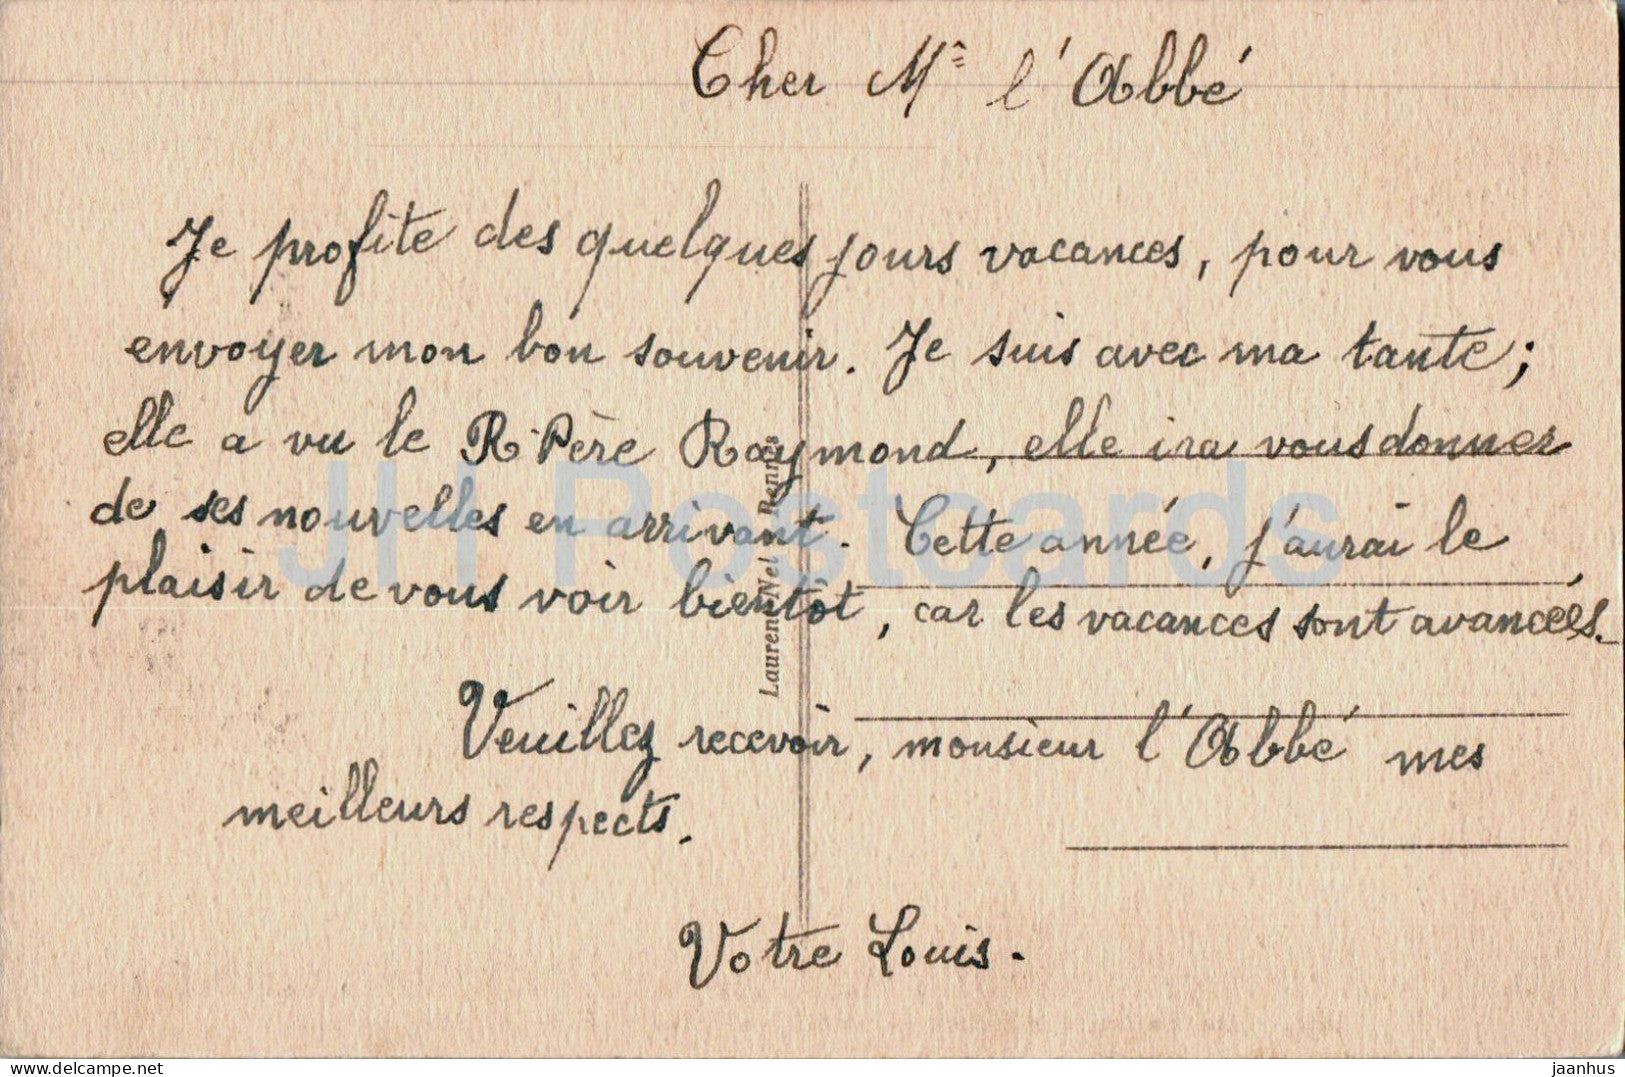 Cher Mr l'Abbé
Je profite des quelques jours vacances, pour vous
envoyer mon bon souvenir. Je suis avec ma tante;
elle a vu le R. Père Raymond, elle ira vous donner
de ses nouvelles en arrivant. Cette année, j'aurai le
plaisir de vous voir bientôt, car les vacances sont avancées.
Veuillez recevoir, monsieur l'Abbé mes
meilleurs respects.
Votre Louis.
Laurent-Nel Rennes
JH Postcards
delcampe.net
jaanhus